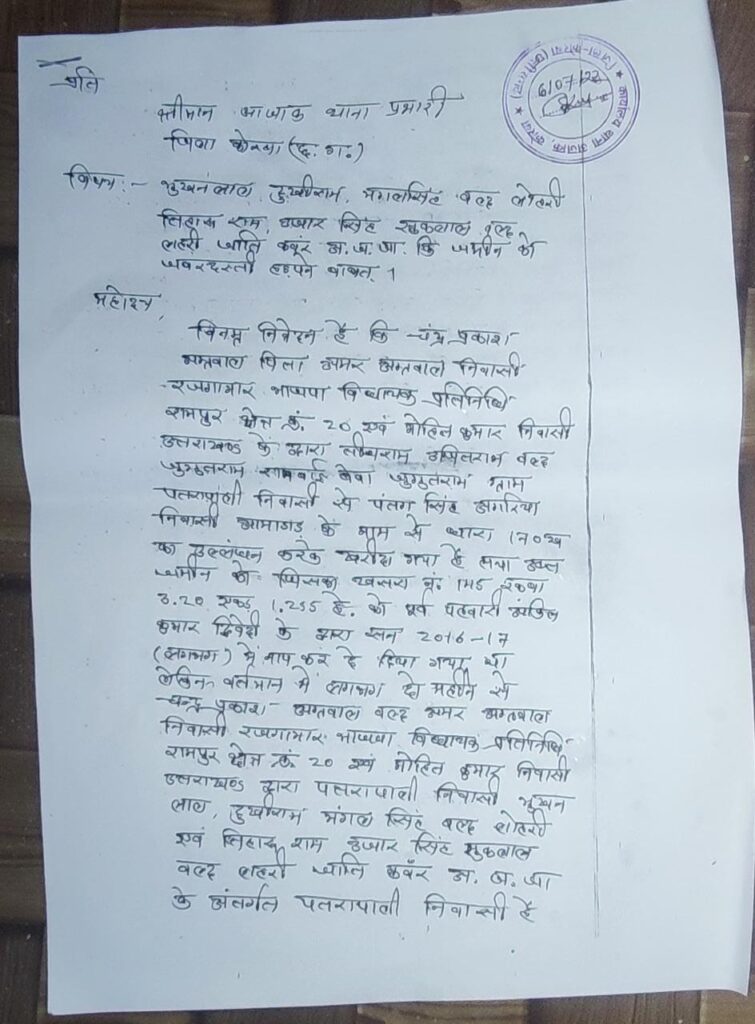 प्रति
श्रीमान आजाक थाना प्रभारी
जिला कोरबा (छ. ग.)
विषय :- भुखनलाल, दुखीराम, मंगलसिंह वल्द लोहरी
तिहारू राम, हजार सिंह सुकलाल वल्द
लहरी जाति कवंर अ. ज. जा. कि जमीन को
जबरदस्ती हड़पने बाबत् ।
महोदय,
विनम्र निवेदन है कि चंद्र प्रकाश
अग्रवाल पिता अमर अग्रवाल निवासी
रजगामार भाजपा विधायक प्रतिनिधि
रामपुर क्षेत्र क्रं. 20 एवं मोहित कुमार निवासी
उत्तराखण्ड के द्वारा वल्द
जुगुतराम बेवा जुगुतराम ग्राम
पतरापाली निवासी से पंतग सिंह अगरिया
निवासी आमाडांड के नाम से धारा 170ख
का उल्लंघन करके खरीदा गया है तथा उक्त
जमीन को जिसका खसरा नं. 1145 रकबा
3.20 एकड़ 1.255 हे. को पूर्व पटवारी
कुमार द्विवेदी के द्वारा सन 2016-17
(लगभग) में नाप कर दे दिया गया था
लेकिन वर्तमान में लगभग दो महीने से
चन्द्र प्रकाश अग्रवाल वल्द अमर अग्रवाल
निवासी रजगामार भाजपा विधायक प्रतिनिधि
रामपुर क्षेत्र क्रं. 20 एवं मोहित कुमार निवासी
उत्तराखण्ड द्वारा पतरापाली निवासी भुखन
लाल, दुखीराम मंगल सिंह वल्द लोहरी
एवं तिहारू राम हजार सिंह सुकलाल
वल्द लहरी जाति कवंर अ. ज. जा
के अंतर्गत पतरापाली निवासी है
कार्यालय थाना अजाक, कोरबा
जिला-कोरबा (छत्तीसगढ़)
6/07/22